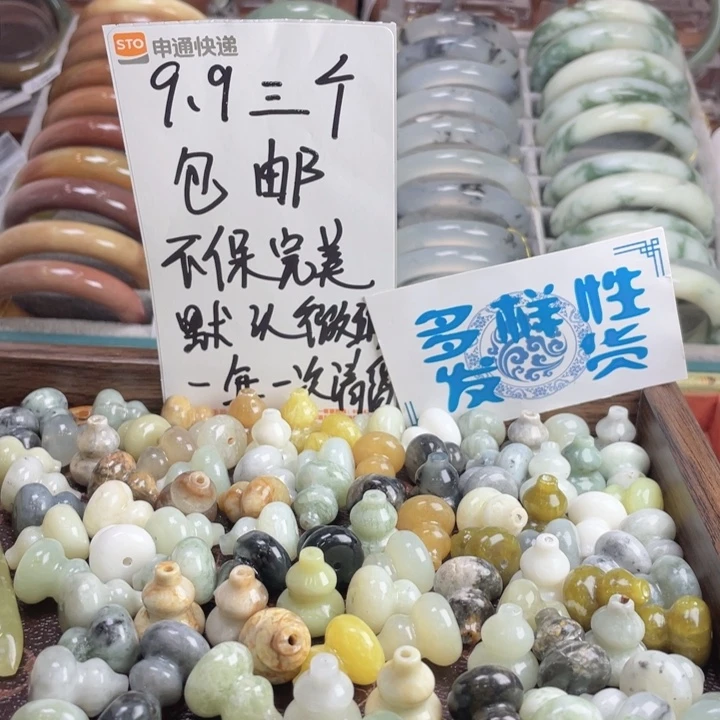 STO 申通快递
9.9三个
包邮
不保完美
默认微瑕
一年一次清
多样性
发货